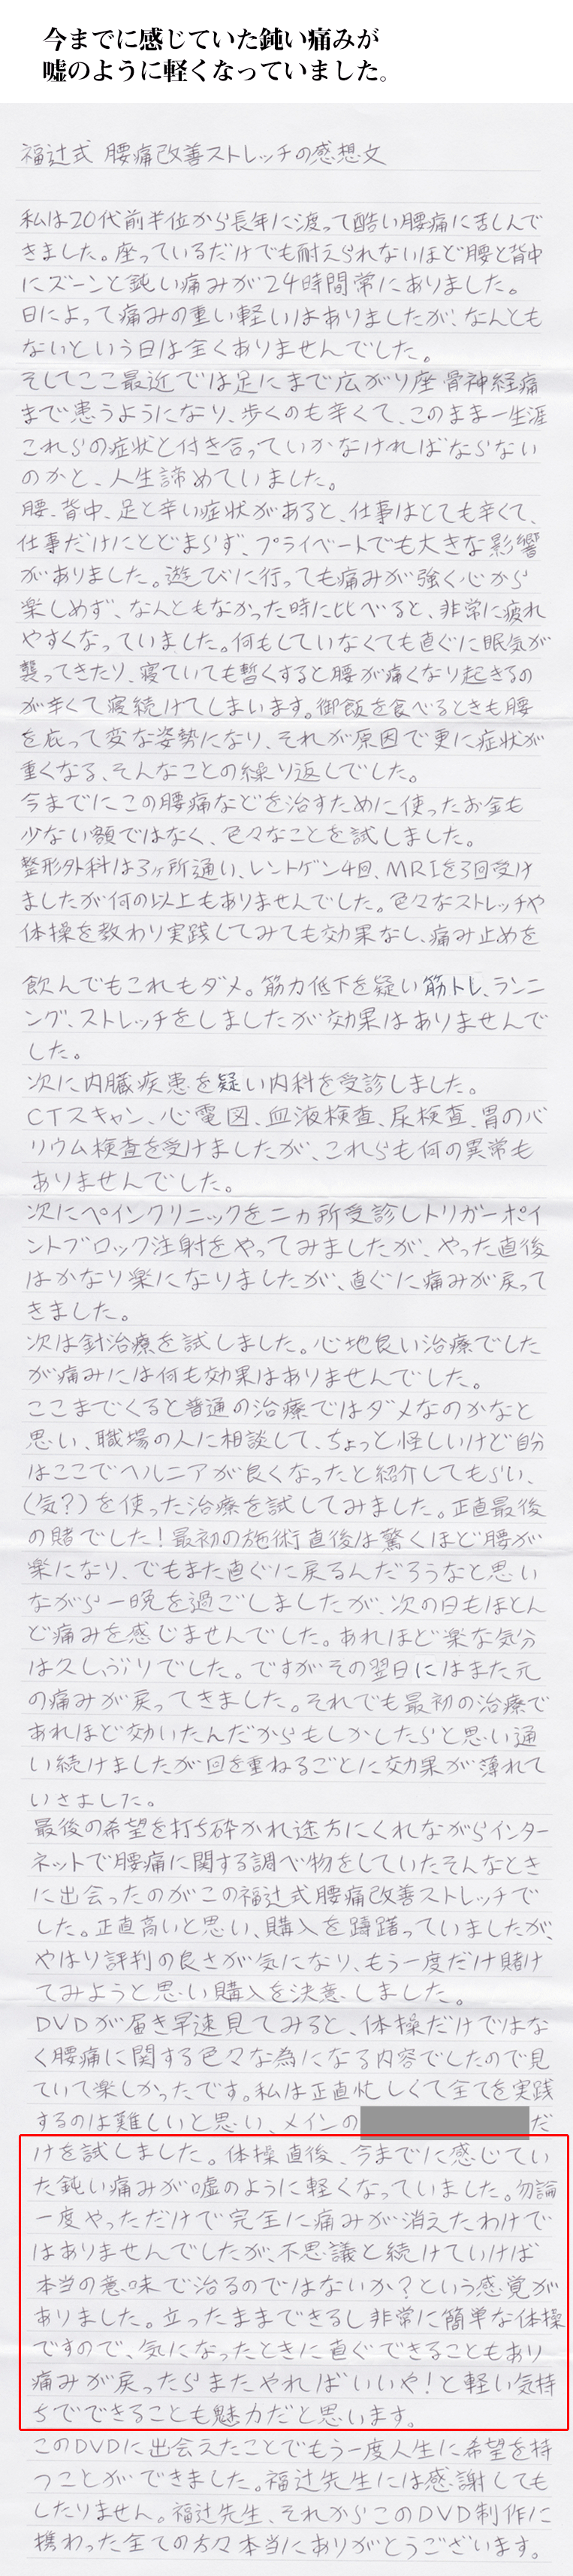 今までに感じていた鈍い痛みが
嘘のように軽くなっていました。
福辻式 腰痛改善ストレッチの感想文
私は20代前半位から長年に渡って酷い腰痛に苦しんで
きました。座っているだけでも耐えられないほど腰と背中
にズーンと鈍い痛みが24時間常にありました。
日によって痛みの重い軽いはありましたが、なんとも
ないという日は全くありませんでした。
そしてここ最近では足にまで広がり座骨神経痛
まで患うようになり、歩くのも辛くて、このまま一生涯
これらの症状と付き合っていかなければならない
のかと、人生諦めていました。
腰、背中、足と辛い症状があると、仕事はとても辛くて、
仕事だけにとどまらず、プライベートでも大きな影響
がありました。遊びに行っても痛みが強く心から
楽しめず、なんともなかった時に比べると、非常に疲れ
やすくなっていました。何もしていなくても直ぐに眠気が
襲ってきたり、寝ていても暫くすると腰が痛くなり起きるの
が辛くて寝続けてしまいます。御飯を食べるときも腰
を庇って変な姿勢になり、それが原因で更に症状が
重くなる、そんなことの繰り返しでした。
今までにこの腰痛などを治すために使ったお金も
少ない額ではなく、色々なことを試しました。
整形外科は3ヶ所通い、レントゲン4回、MRIを3回受け
ましたが何の以上もありませんでした。色々なストレッチや
体操を教わり実践してみても効果なし、痛み止めを
飲んでもこれもダメ。筋力低下を疑い筋トレ、ランニ
ング、ストレッチをしましたが効果はありませんで
した。
次に内臓疾患を疑い内科を受診しました。
CTスキャン、心電図、血液検査、尿検査、胃のバ
リウム検査を受けましたが、これらも何の異常も
ありませんでした。
次にペインクリニックを二カ所受診しトリガーポイ
ントブロック注射をやってみましたが、やった直後
はかなり楽になりましたが、直ぐに痛みが戻って
きました。
次は針治療を試しました。心地良い治療でした
が痛みには何も効果はありませんでした。
ここまでくると普通の治療ではダメなのかなと
思い、職場の人に相談して、ちょっと怪しいけど自分
はここでヘルニアが良くなったと紹介してもらい、
(気?)を使った治療を試してみました。正直最後
の賭でした!最初の施術直後は驚くほど腰が
楽になり、でもまた直ぐに戻るんだろうなと思い
ながら一晩を過ごしましたが、次の日もほとん
ど痛みを感じませんでした。あれほど楽な気分
は久しぶりでした。ですがその翌日にはまた元
の痛みが戻ってきました。それでも最初の治療で
あれほど効いたんだからもしかしたらと思い通
い続けましたが回を重ねるごとに効果が薄れて
いきました。
最後の希望を打ち砕かれ途方にくれながらインター
ネットで腰痛に関する調べ物をしていたそんなとき
に出会ったのがこの福辻式腰痛改善ストレッチで
した。正直高いと思い、購入を躊躇っていましたが、
やはり評判の良さが気になり、もう一度だけ賭け
てみようと思い購入を決意しました。
DVDが届き早速見てみると、体操だけではな
く腰痛に関する色々な為になる内容でしたので見
ていて楽しかったです。私は正直忙しくて全てを実践
するのは難しいと思い、メインの だ
けを試しました。体操直後、今までに感じてい
た鈍い痛みが嘘のように軽くなっていました。勿論
一度やっただけで完全に痛みが消えたわけで
はありませんでしたが、不思議と続けていけば
本当の意味で治るのではないか?という感覚が
ありました。立ったままできるし非常に簡単な体操
ですので、気になったときに直ぐできることもあり
痛みが戻ったらまたやればいいや!と軽い気持
ちでできることも魅力だと思います。
このDVDに出会えたことでもう一度人生に希望を持
つことができました。福辻先生には感謝しても
したりません。福辻先生、それからこのDVD制作に
携わった全ての方々本当にありがとうございます。